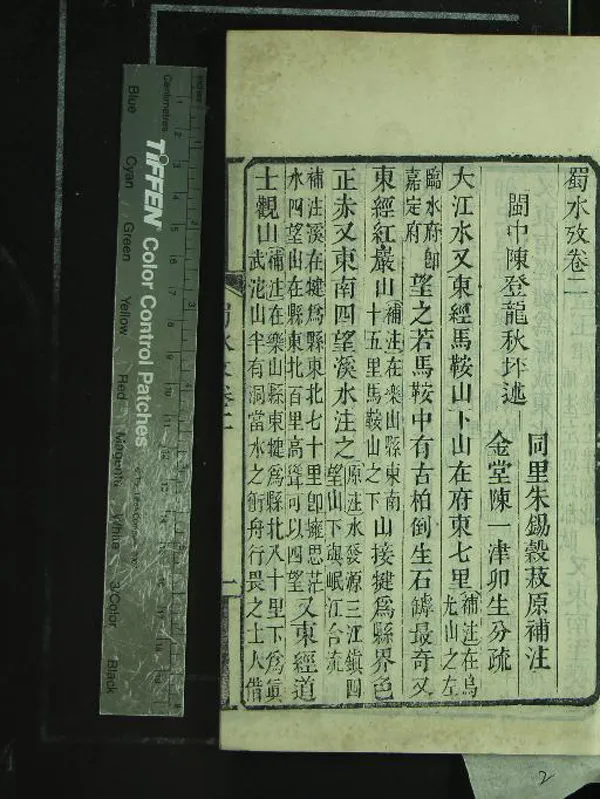 蜀水攷卷二
閩中陳登龍秋坪述
同里朱錫穀菽原補注
金堂陳一津卯生分疏
大江水又東經馬鞍山下山在府東七里補注在烏尤山之左
臨水府卽嘉定府望之若馬鞍中有古柏倒生石罅最奇又
東經紅巖山補注在樂山縣東南十五里馬鞍山之下山接犍爲縣界色
正赤又東南四望溪水注之原注水發源三江鎮四望山下與岷江合流
補注溪在犍爲縣東北七十里卽擁思茫水四望山在縣東北百里高聳可以四望又東經道
士觀山補注在樂山縣東犍爲縣北八十里下爲鎮武沱山半有洞當水之衝舟行畏之土人借
蜀水攷卷二
一
TIFFEN Color Control Patches
Centimetres
Inches
Blue
Cyan
Green
Yellow
Red
Magenta
White
3/Color
Black
2